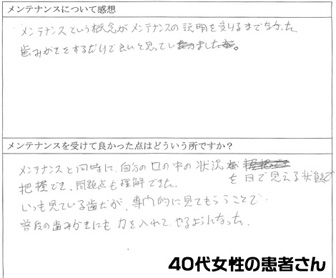 メンテナンスについて感想
メンテナンスという概念がメンテナンスの説明を受けるまでなかった。
歯みがきをするだけで良いと思っていました。
メンテナンスを受けて良かった点はどういう所ですか？
メンテナンスと同時に、自分の口の中の状況を目で見える状態で
把握でき、問題点も理解できた。
いつも見ている歯だが、専門的に見てもらうことで
普段の歯みがきにも力を入れてやるようになった。
40代女性の患者さん